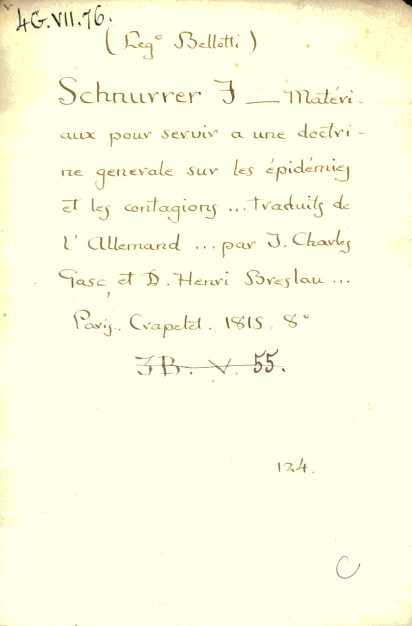 4G.VII.76.
(Leg° Bellotti)
Schnurrer J — Matéri-
aux pour servir a une doctri-
ne generale sur les épidémies
et les contagions ... traduits de
l'Allemand ... par J. Charles
Gasc, et D. Henri Breslau ...
Paris. Crapelet. 1815. 8°
3B. V. 55.
124.
C